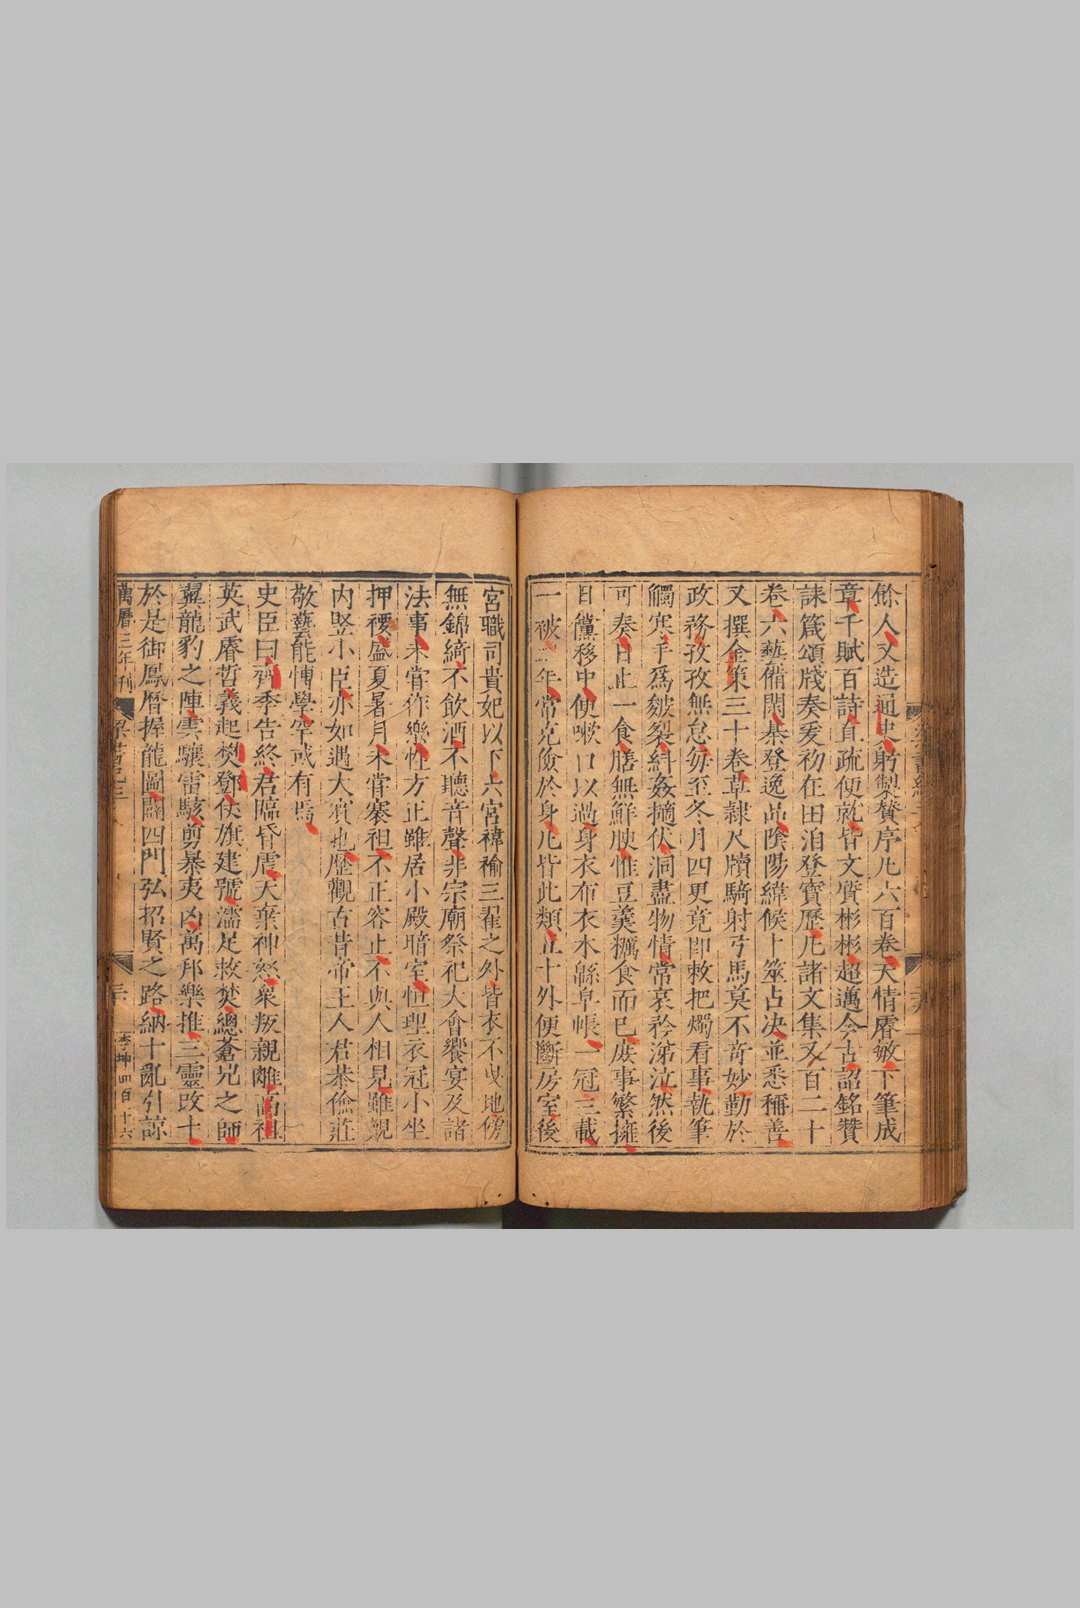 餘人又造通史躬製贊序凡六百卷天情睿敏下筆成
章千賦百詩直疏便就皆文質彬彬超邁今古詔銘贊
誄箴頌牋奏爰初在田洎登寶曆凡諸文集又百二十
卷六藝備閑棊登逸品陰陽緯候卜筮占決並悉稱善
又撰金策三十卷草隸尺牘騎射弓馬莫不奇妙勤於
政務孜孜無怠每至冬月四更竟即敕把燭看事執筆
觸寒手爲皴裂糾姦擿伏洞盡物情常哀矜涕泣然後
可奏日止一食膳無鮮腴惟豆羹糲食而已庶事繁擁
日儻移中便嗽口以過身衣布衣木緜皁帳一冠三載
一被二年常克儉於身凡皆此類五十外便斷房室後
宮職司貴妃以下六宮褘褕三翟之外皆衣不曳地傍
無錦綺不飲酒不聽音聲非宗廟祭祀大會饗宴及諸
法事未嘗作樂性方正雖居小殿暗室恒理衣冠小坐
押䙅盛夏暑月未嘗褰袒不正容止不與人相見雖覿
內竪小臣亦如遇大賓也歷觀古昔帝王人君恭儉莊
敬藝能博學罕或有焉
史臣曰齊季告終君臨昏虐天棄神怒衆叛親離高祖
英武睿哲義起樊鄧仗旗建號濡足救焚總蒼兕之師
翼龍豹之陣雲驤雷駭剪暴夷凶萬邦樂推三靈改卜
於是御鳳曆握龍圖闢四門弘招賢之路納十亂引諒
萬曆三年刊
梁書紀三
三
李坤四百十六